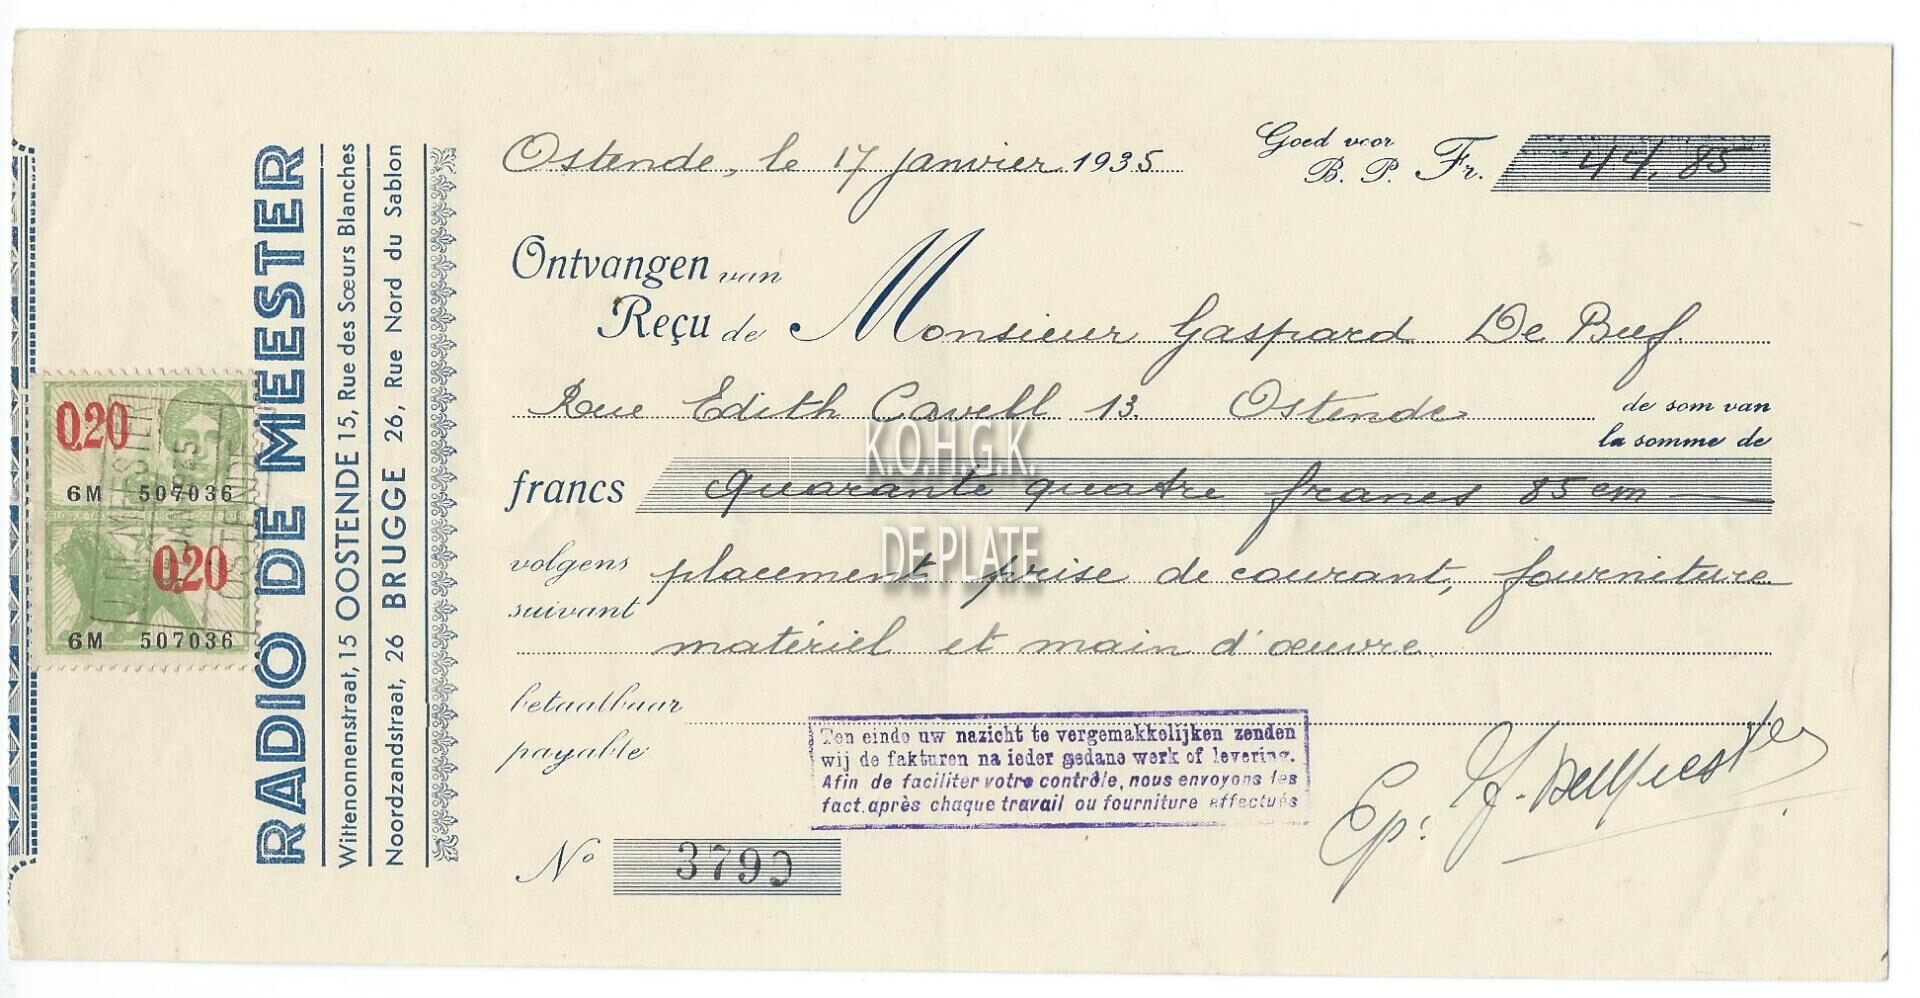 RADIO DE MEESTER
Wittenonnenstraat, 15 OOSTENDE 15, Rue des Sœurs Blanches
Noordzandstraat, 26 BRUGGE 26, Rue Nord du Sablon
0.20
6M 507036
0.20
6M 507036
OSTENDE
Ostende, le 17 janvier 1935
Goed voor
B. P. Fr. 44,85
Ontvangen van
Reçu de Monsieur Gaspard De Buf.
Rue Edith Cavell 13. Ostende de som van
la somme de
K.O.H.G.K.
francs quarante quatre francs 85 cm
DE PLATE
volgens placement prise de courant, fourniture
suivant
matériel et main d'œuvre.
betaalbaar
payable
Ten einde uw nazicht te vergemakkelijken zenden
wij de fakturen na ieder gedane werk of levering.
Afin de faciliter votre contrôle, nous envoyons les
fact. après chaque travail ou fourniture effectués
No 3799